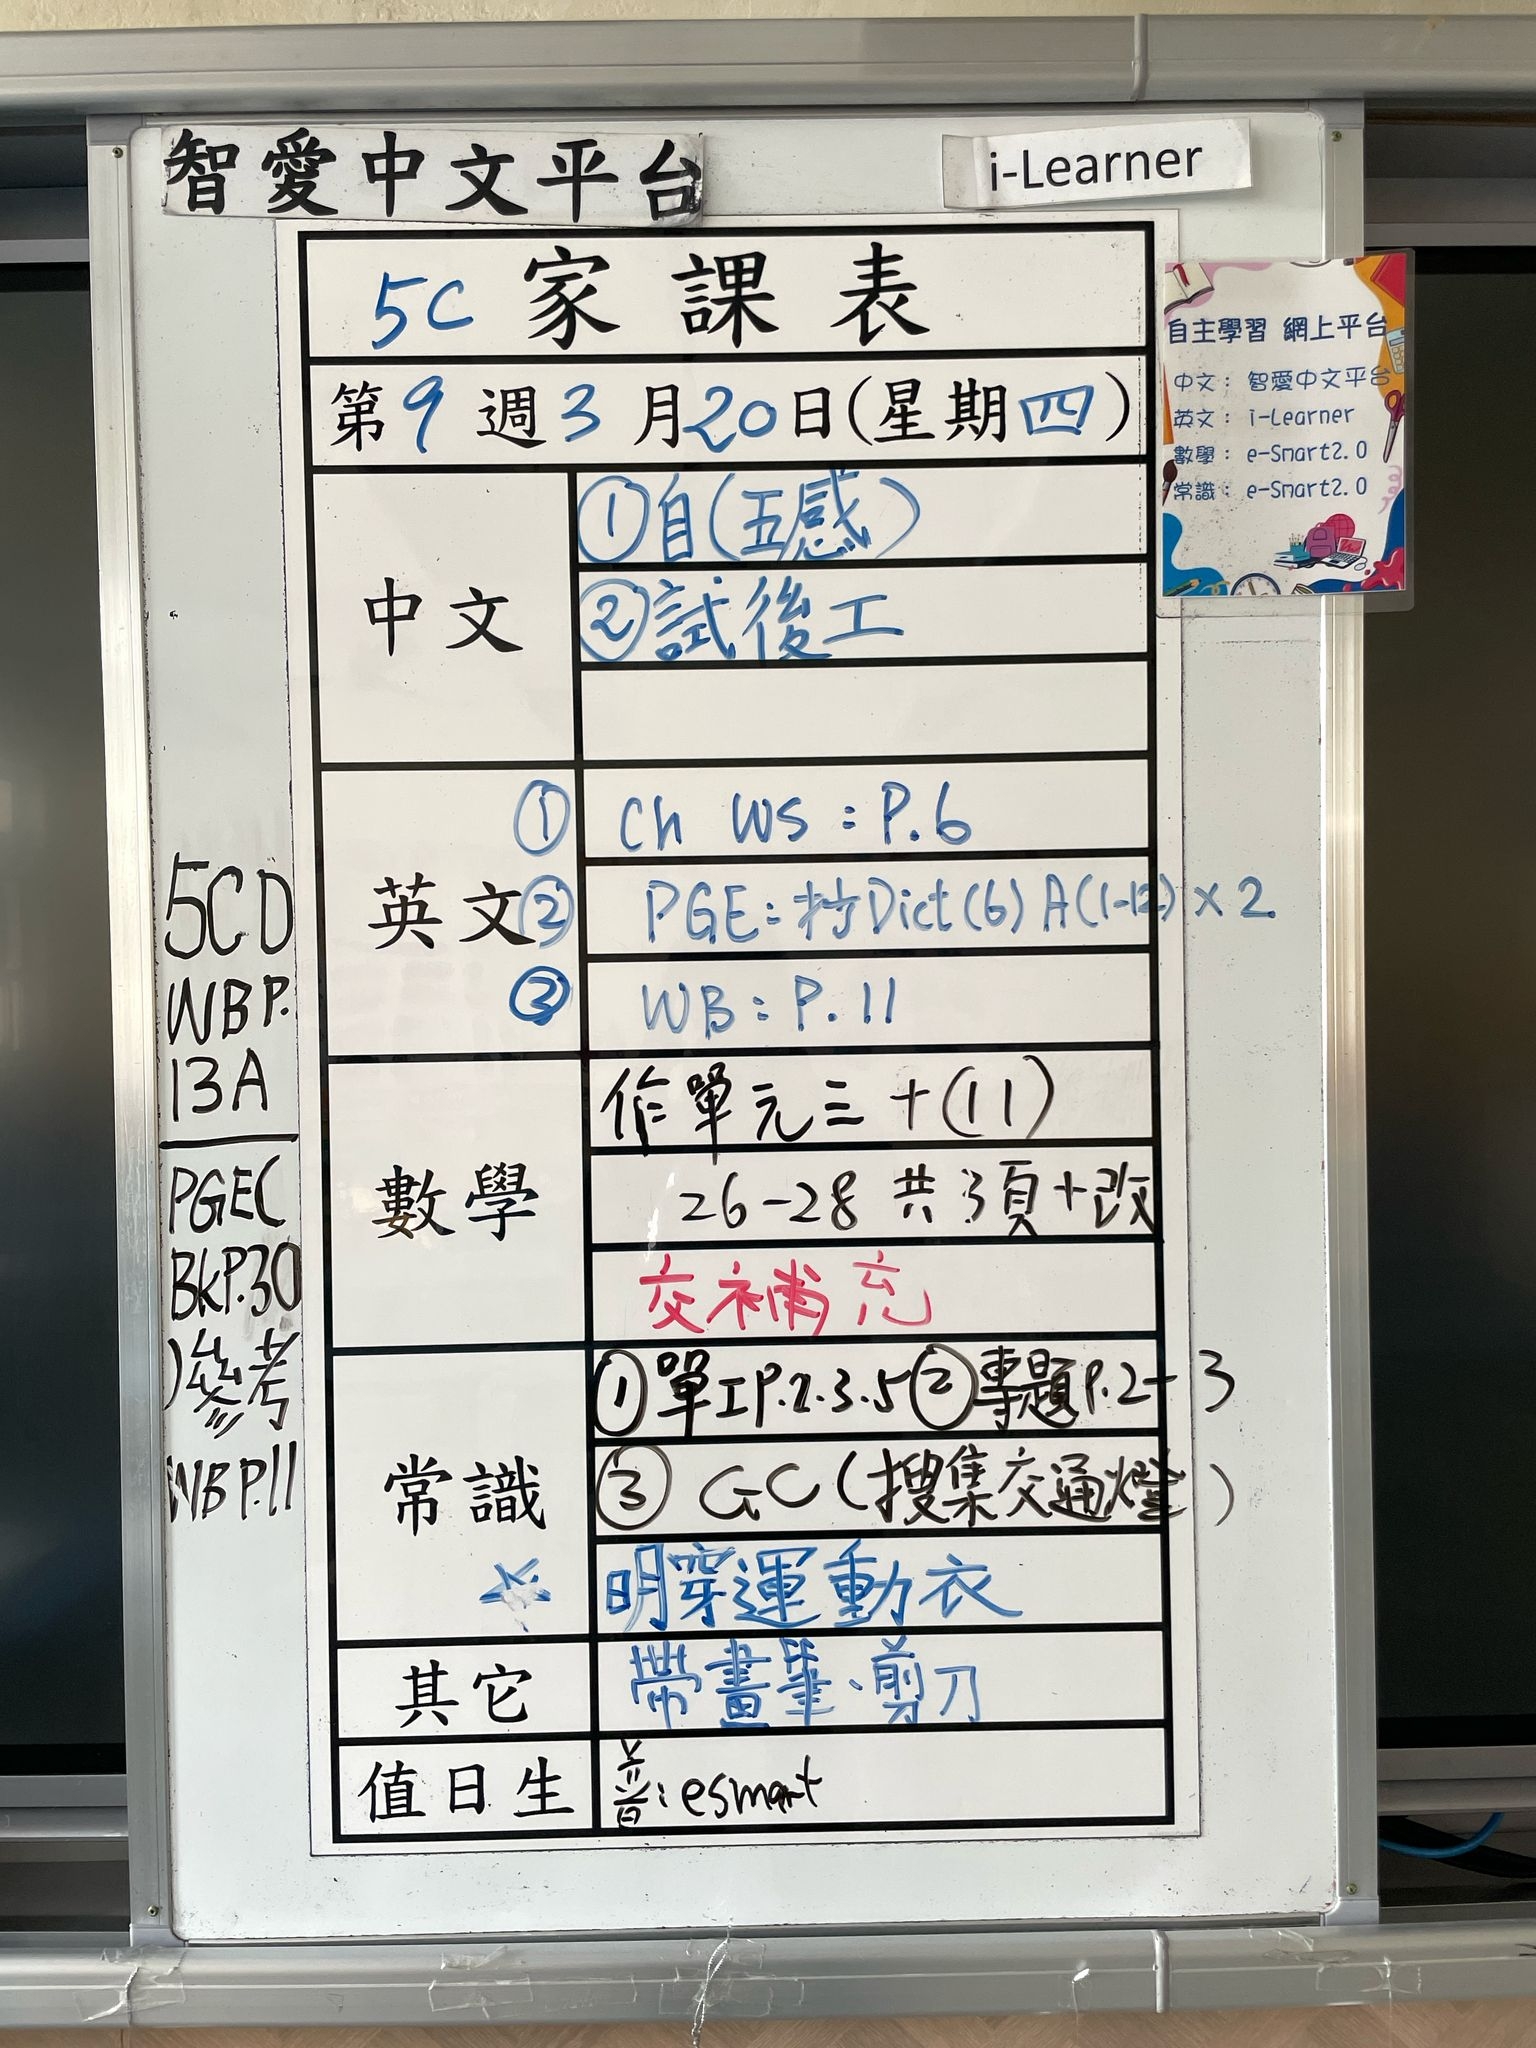 智愛中文平台
i-Learner
5C 家課表
第9週3月20日(星期四)
中文
①自(五感)
②試後工
英文
① Ch WS : P.6
② PGE : 抄Dict(6) A(1-12) x 2
③ WB : P.11
數學
作單元三+(11)
26-28 共3頁+改
交補充
常識
①單工P.2.3.5②專題P.2-3
③ GC(搜集交通燈)
明穿運動衣
其它
帶畫筆、剪刀
值日生
音: esmart
5CD
WB P.
13A
PGE(
BkP.30
)參考
WB P.11
自主學習 網上平台
中文: 智愛中文平台
英文: i-Learner
數學: e-Smart2.0
常識: e-Smart2.0